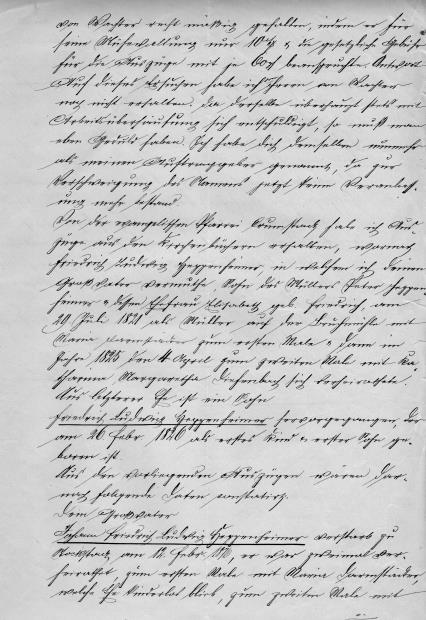 von Wachter recht mäßig gehalten, indem er für
seine Mühewaltung nur 10 M & die gesetzliche Gebühr
für die Auszüge mit je 60 ₰ beansprucht. Antwort
Auf dieses Ersuchen habe ich Herrn von Wachter
noch nicht erhalten. Da derselbe überhaupt stets mit
Arbeitsüberhäufung sich entschuldigt, so muß man
eben Geduld haben. Ich habe dich demselben nunmehr
als meinen Auftraggeber genannt, da zur
Verschweigung des Namens jetzt keine Veranlas-
sung mehr bestand.
Von der evangelischen Pfarrei Crumstadt habe ich Aus-
züge aus den Kirchenbüchern erhalten, wornach
Friedrich Ludwig Heppenheimer, in welchem ich deinen
Großvater vermuthe, Sohn des Müllers Peter Heppen-
heimer & dessen Ehefrau Elisabeth geb. Friedrich, am
29 Juli 1821 als Müller auf der Bruchmühle mit
Maria Darmstädter zum ersten Male & dann im
Jahre 1825 den 4 April zum zweiten Male mit Ka-
tharina Margaretha Diefenbach sich verheirathete.
Aus letzterer Ehe ist ein Sohn
Friedrich Ludwig Heppenheimer hervorgegangen, der
am 26 Febr. 1826 als erstes Kind & erster Sohn ge-
boren ist.
Aus den vorliegenden Auszügen wären dar-
nach folgende Daten constatirt:
Den Großvater
Johann Friedrich Ludwig Heppenheimer verstarb zu
am 12 Febr. er war zweimal ver-
heirathet, zum ersten Male mit Maria Darmstädter
welche Ehe kinderlos blieb, zum zweiten Male mit